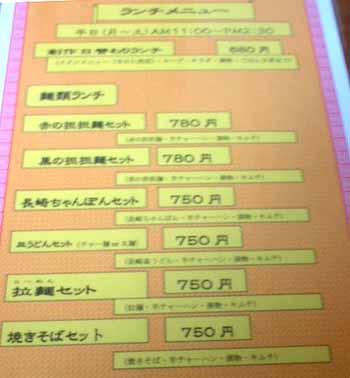 ランチメニュー
平日(月~土)AM11:00~PM2:30
創作日替わりランチ 680円
麺類ランチ
赤の担担麺セット 780円
(赤の担担麺・半チャーハン・漬物・キムチ)
黒の担担麺セット 780円
(黒の担担麺・半チャーハン・漬物・キムチ)
長崎ちゃんぽんセット 750円
(長崎ちゃんぽん・半チャーハン・漬物・キムチ)
皿うどんセット 750円
(長崎皿うどん・半チャーハン・漬物・キムチ)
らーめん
拉麺セット 750円
(拉麺・半チャーハン・漬物・キムチ)
焼きそばセット 750円
(焼きそば・半チャーハン・漬物・キムチ)